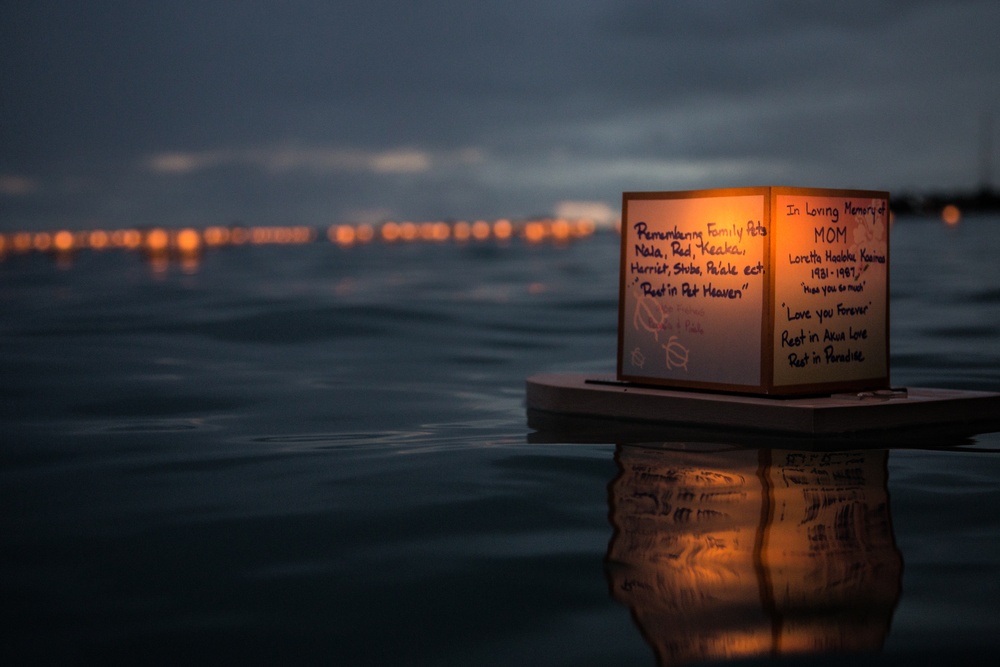 Remembering Family Pets
Nala, Red, Keaka,
Harriet, Stubs, Pa'ale ect.
"Rest in Pet Heaven"
In Loving Memory of
MOM
Loretta
1931-1987
"Miss you so much"
"Love you Forever"
Rest in Akua Love
Rest in Paradise